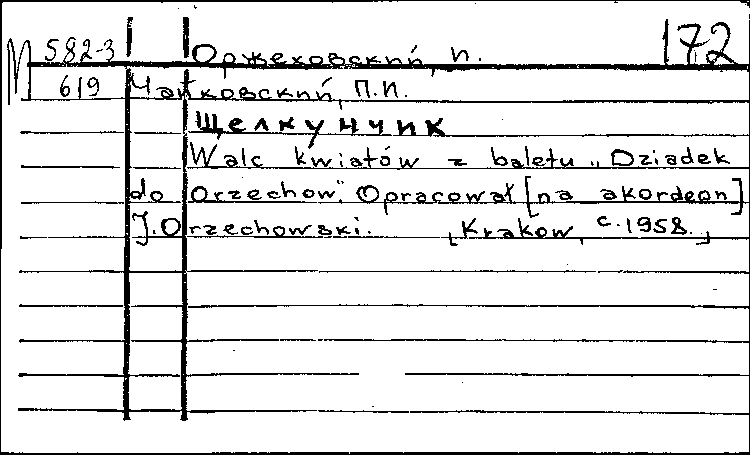 М 582-3 Оржеховский, И. 172
619 Чайковский, П.И.
Щелкунчик
Walc kwiatów z baletu „Dziadek
do Orzechow". Opracował [na akordeon]
J. Orzechowski. [Krakow, c.1958.]